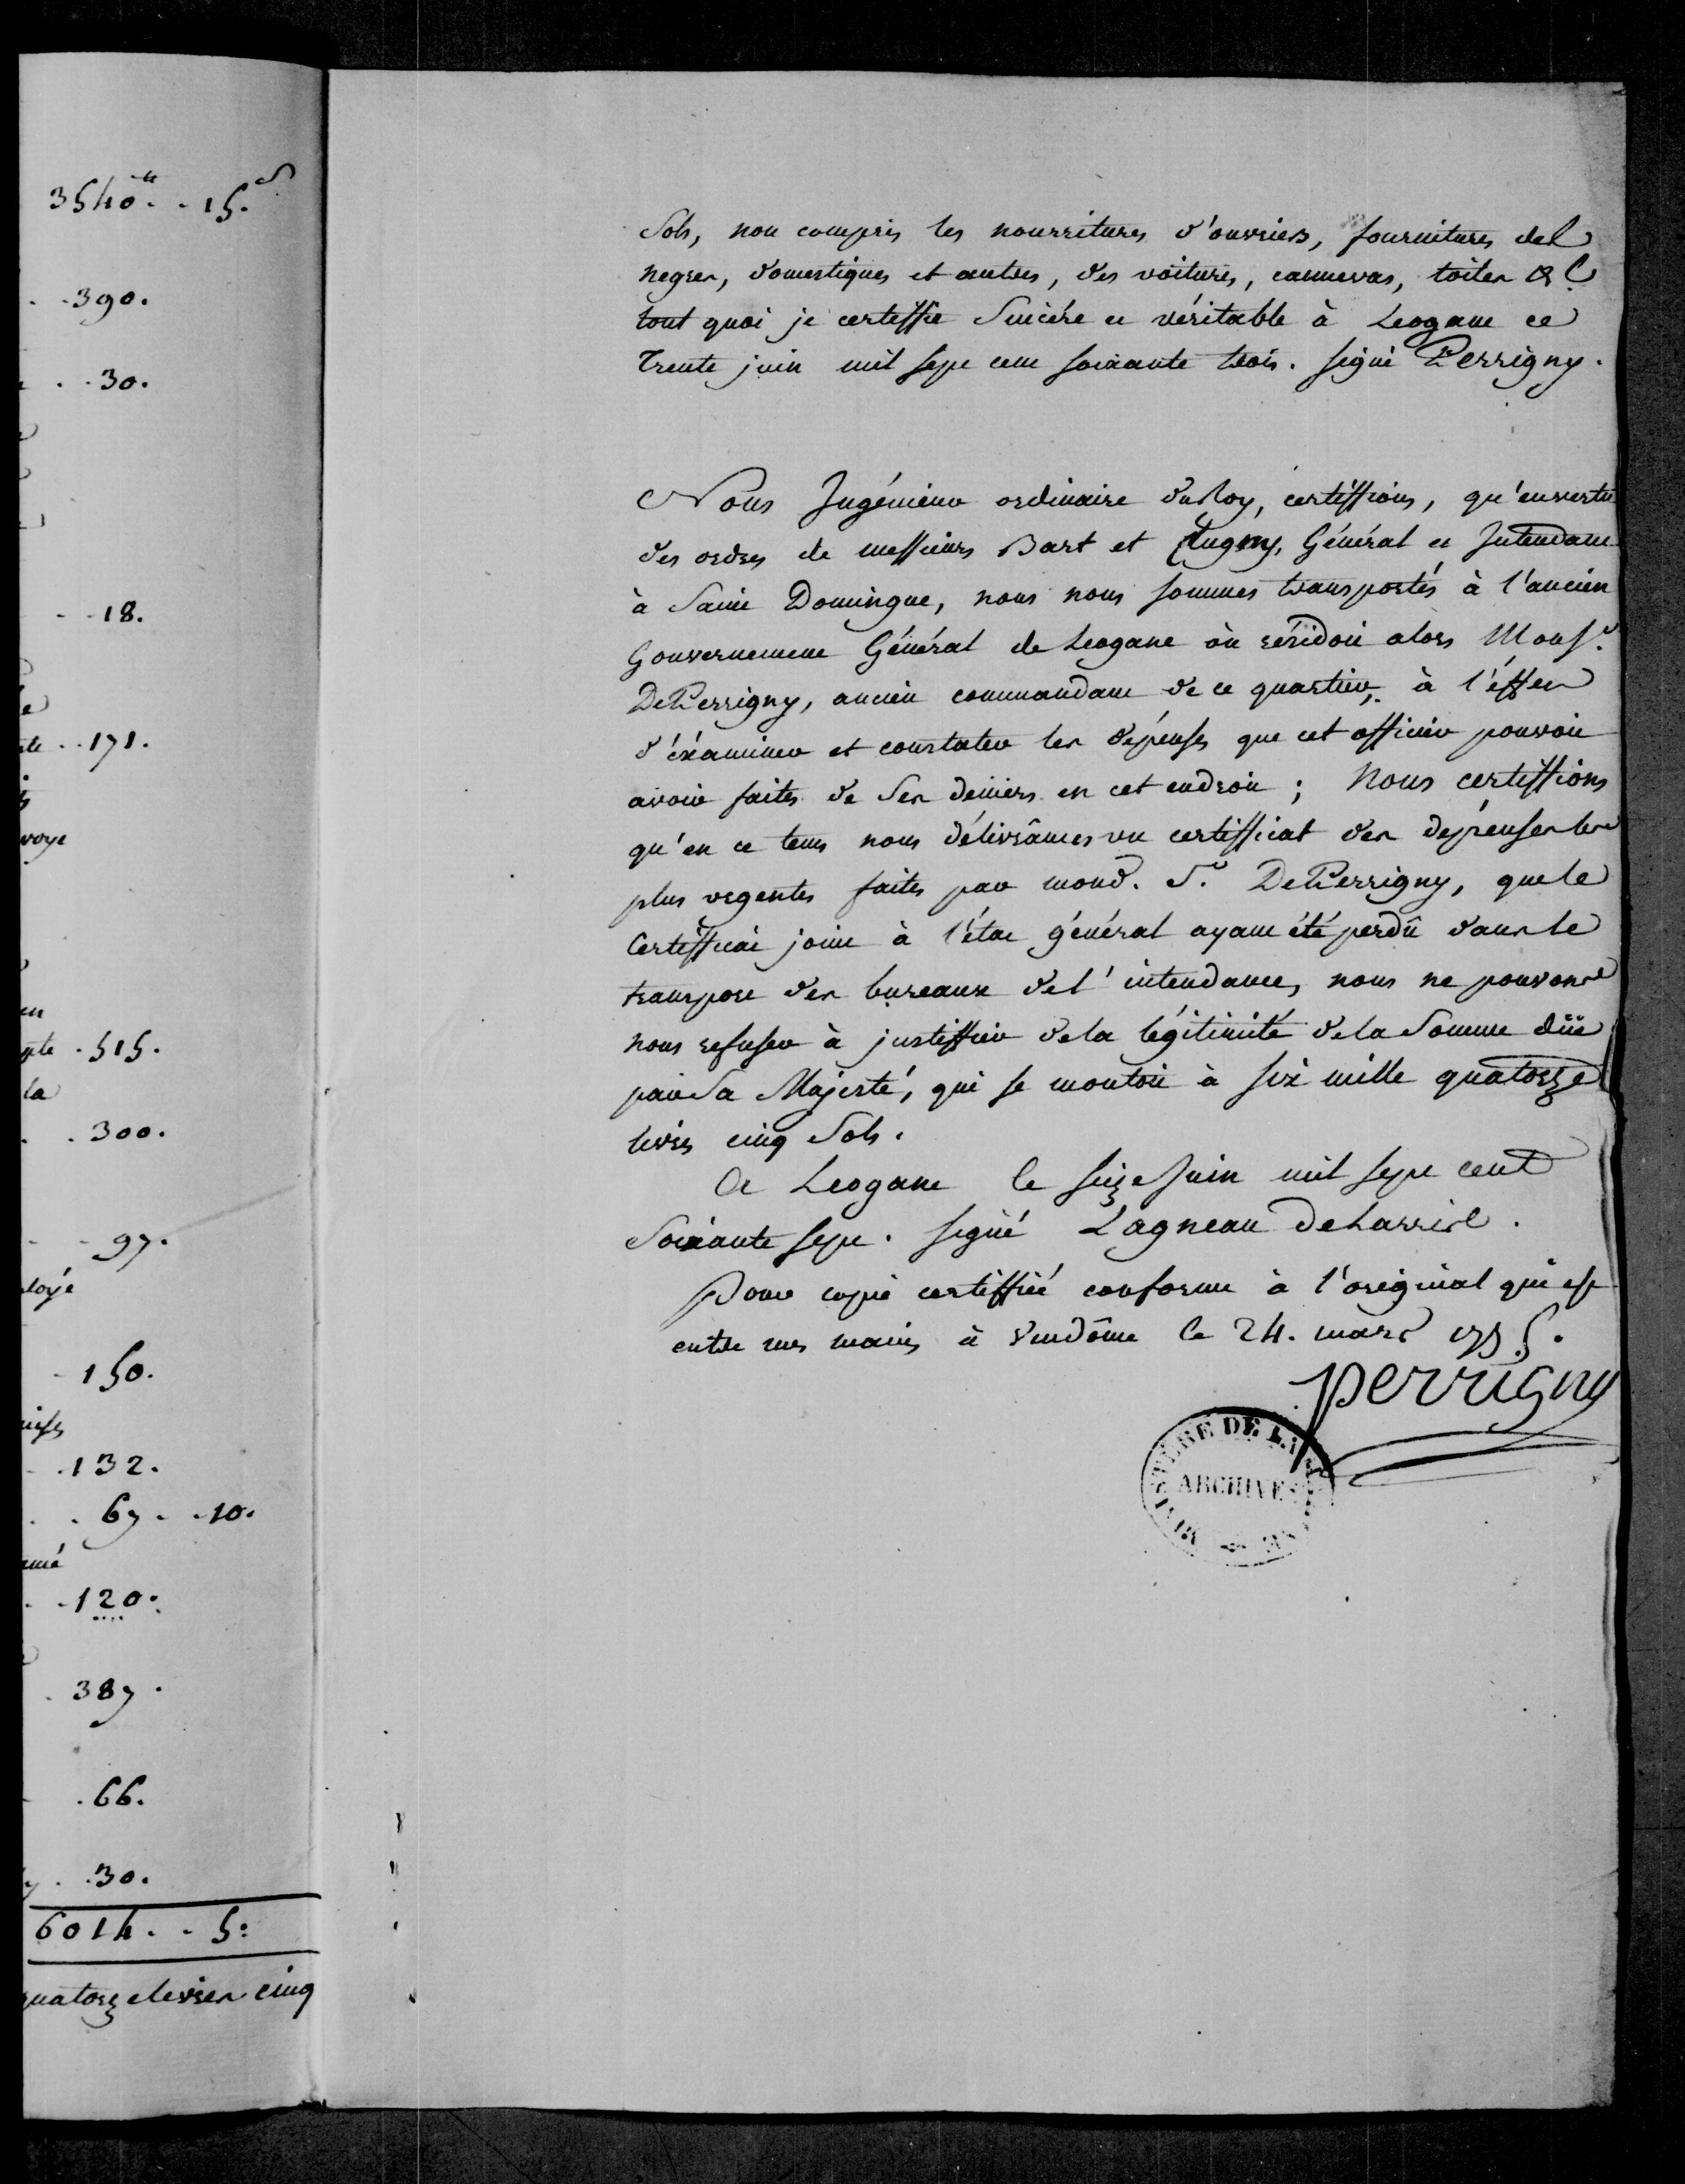 3540.ᵗᵗ . 15.ˢ
. . 390.
. . 30.
. . 18.
te . . 171.
voye
en
pte . 515.
la
. . 300.
. . 97.
ployé
. 150.
. . 132.
. . 67 . . 10.
. . 120.
. 387.
. 66.
. . 30.
6014. . . 5.
quatorze livres cinq
Sols, non compris les nourritures d'ouvriers, fournitures de
negres, domestiques et autres, des voitures, cannevas, toiles &c.
tout quoi je certiffie Sincére et véritable à Leogane ce
Trente juin mil sept cent soixante trois. signé Perrigny.
Nous Ingénieur ordinaire du Roy, certiffions, qu'en vertu
des ordres de messieurs Bart et Clugny, Général et Intendant
à Saint Domingue, nous nous sommes transportés à l'ancien
Gouvernement Général de Leogane où résidoit alors Mons.r
De Perrigny, ancien commandant de ce quartier, à l'éffet
d'éxaminer et constater les dépenses que cet officier pouvoit
avoir faites de Ses deniers en cet endroit ; Nous certiffions
qu'en ce tems nous délivrâmes un certifficat des dépenses les
plus urgentes faites par mond. S.r De Perrigny, que le
Certifficat joint à l'état général ayant été perdû dans le
transport des bureaux de l'intendance, nous ne pouvons
nous refuser à justiffier de la légitimité de la Somme düe
par Sa Majesté, qui se montoit à six mille quatorze
livres cinq Sols.
A Leogane le seize Juin mil sept cent
Soixante sept. signé L'agneau De
Pour copie certiffiée conforme à l'original qui est
entre mes mains à Vendôme le 24. mars
perrigny
MINISTERE DE LA
ARCHIVES